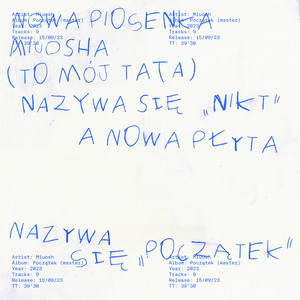 NOWA PIOSENKA
MIUOSHA
(TO MÓJ TATA)
NAZYWA SIĘ „NIKT"
A NOWA PŁYTA
NAZYWA
SIĘ „POCZĄTEK"
Artist: Miuosh
Album: Początek (master)
Year: 2023
Tracks: 9
Release: 15/09/23
TT: 39'30
Artist: Miuosh
Album: Początek (master)
Year: 2023
Tracks: 9
Release: 15/09/23
TT: 39'30
Artist: Miuosh
Album: Początek (master)
Year: 2023
Tracks: 9
Release: 15/09/23
TT: 39'30
Artist: Miuosh
Album: Początek (master)
Year: 2023
Tracks: 9
Release: 15/09/23
TT: 39'30